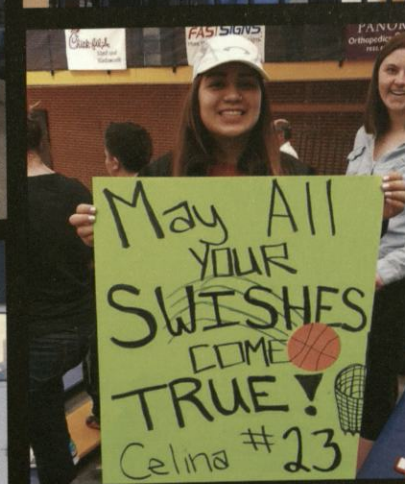 Chick-fil-A
FASTSIGNS
PANOR
Orthopedics
May All
YOUR
SWISHES
COME
TRUE!
Celina #23